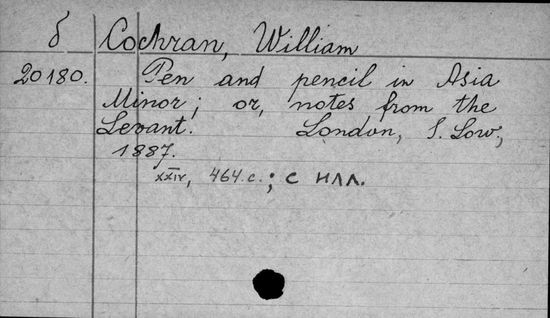 б Cochran, William
20180. Pen and pencil in Asia
Minor; or, notes from the
Levant. London, S. Low,
1887.
XXIV, 464 с.; с илл.